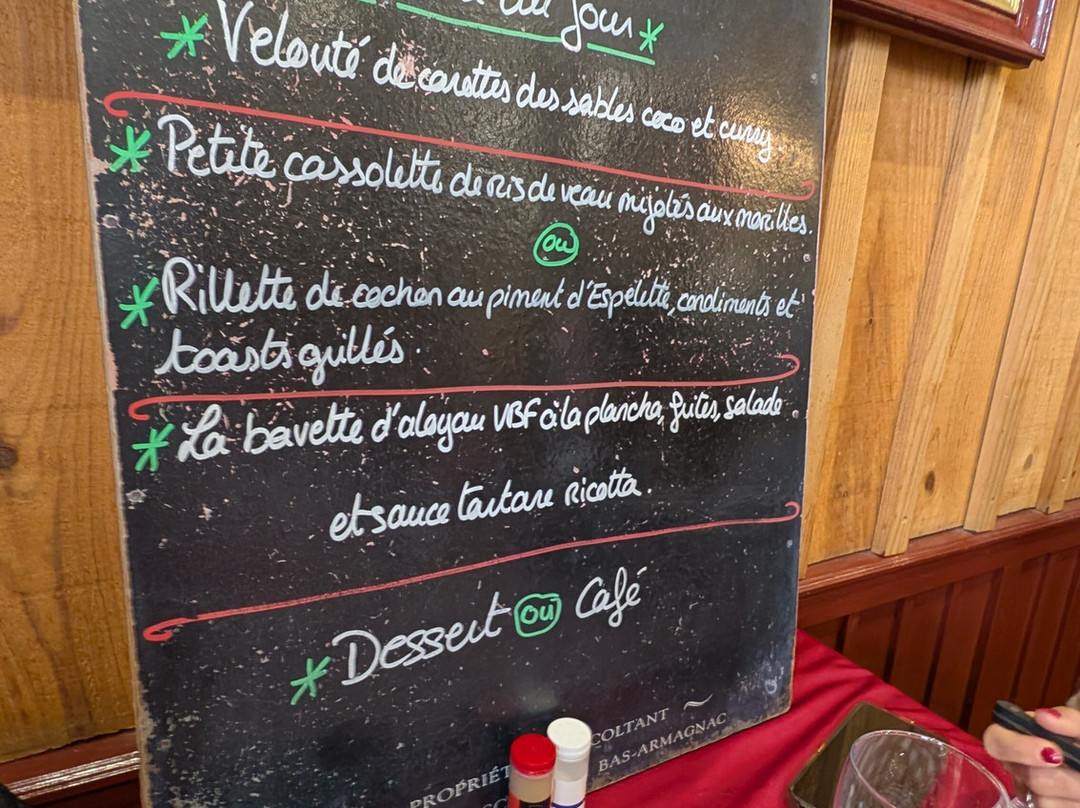 du jour *
* Velouté de carottes des sables coco et curry.
* Petite cassolette de ris de veau mijotés aux morilles.
ou
* Rillette de cochon au piment d'Espelette, condiments et
toasts grillés.
* La bavette d'aloyau VBF à la plancha, frites, salade
et sauce tartare ricotta.
* Dessert ou Café
COLTANT
PROPRIÉT
BAS-ARMAGNAC